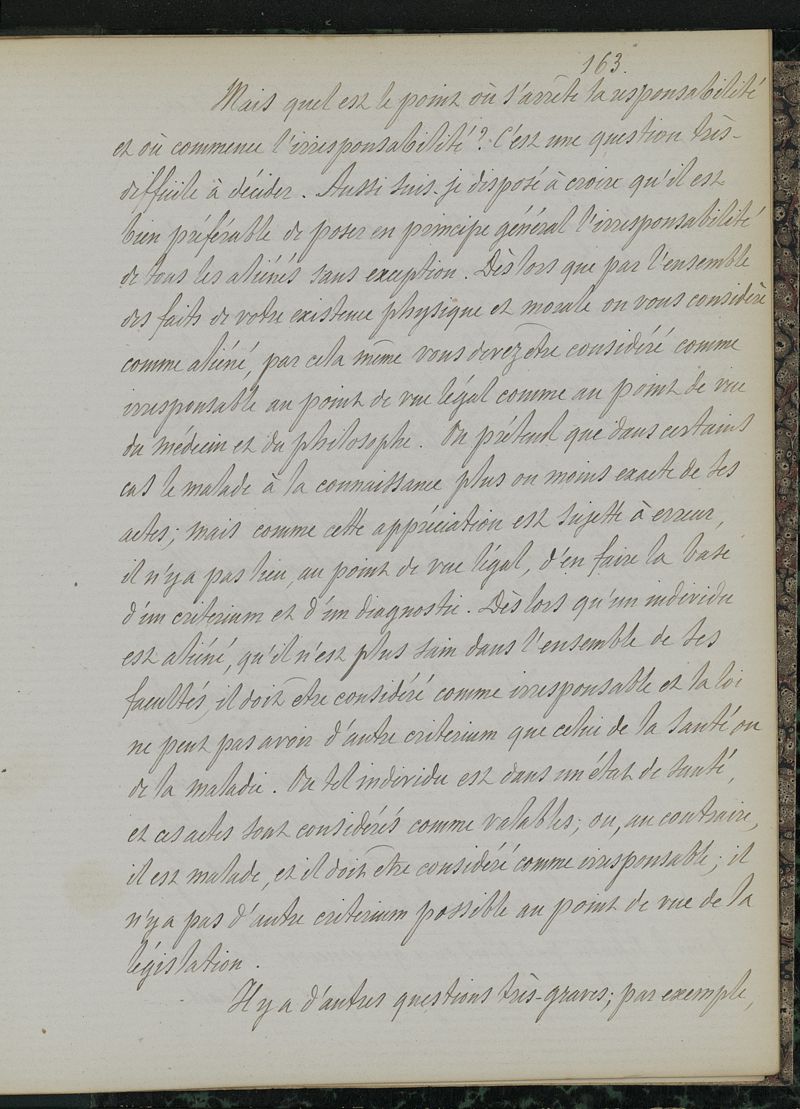 163.
Mais quel est le point où s'arrête la responsabilité
et où commence l'irresponsabilité? C'est une question très-
difficile à décider. Aussi suis-je disposé à croire qu'il est
bien préférable de poser en principe général l'irresponsabilité
de tous les aliénés sans exception. Dès lors que par l'ensemble
des faits de votre existence physique et morale on vous considère
comme aliéné, par cela même vous devez être considéré comme
irresponsable au point de vue légal comme au point de vue
du médecin et du philosophe. On prétend que dans certains
cas le malade à la connaissance plus ou moins exacte de ses
actes; mais comme cette appréciation est sujette à erreur,
il n'y a pas lieu, au point de vue légal, d'en faire la base
d'un criterium et d'un diagnostic. Dès lors qu'un individu
est aliéné, qu'il n'est plus sain dans l'ensemble de ses
facultés, il doit être considéré comme irresponsable et la loi
ne peut pas avoir d'autre criterium que celui de la santé ou
de la maladie. Ou tel individu est dans un état de santé,
et ces actes sont considérés comme valables; ou, au contraire,
il est malade, et il doit être considéré comme irresponsable; il
n'y a pas d'autre criterium possible au point de vue de la
législation.
Il y a d'autres questions très-graves; par exemple,